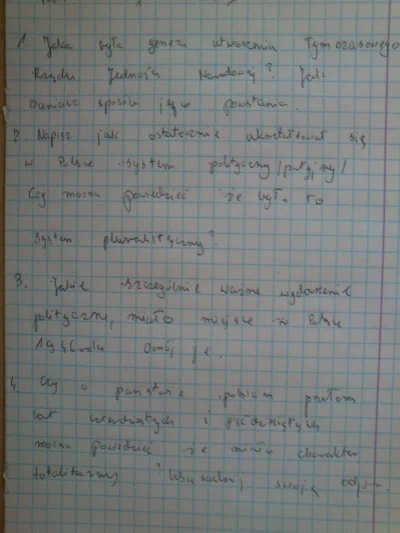 1. Jaka była geneza utworzenia Tymczasowego
Rządu Jedności Narodowej? Jak
sposób jego powstania.
2. Napisz jak ostatecznie ukształtował się
w Polsce system polityczny /partyjny/
Czy można powiedzieć że był to
system pluralistyczny?
3. Jakie szczególnie ważne wydarzenie
polityczne, miało miejsce w Polsce
1946 roku Omów je.
Czy o państwie polskim przełomu
lat czterdziestych i pięćdziesiątych
można powiedzieć że miało charakter
totalitarny? Uzasadnij swoją odpow.